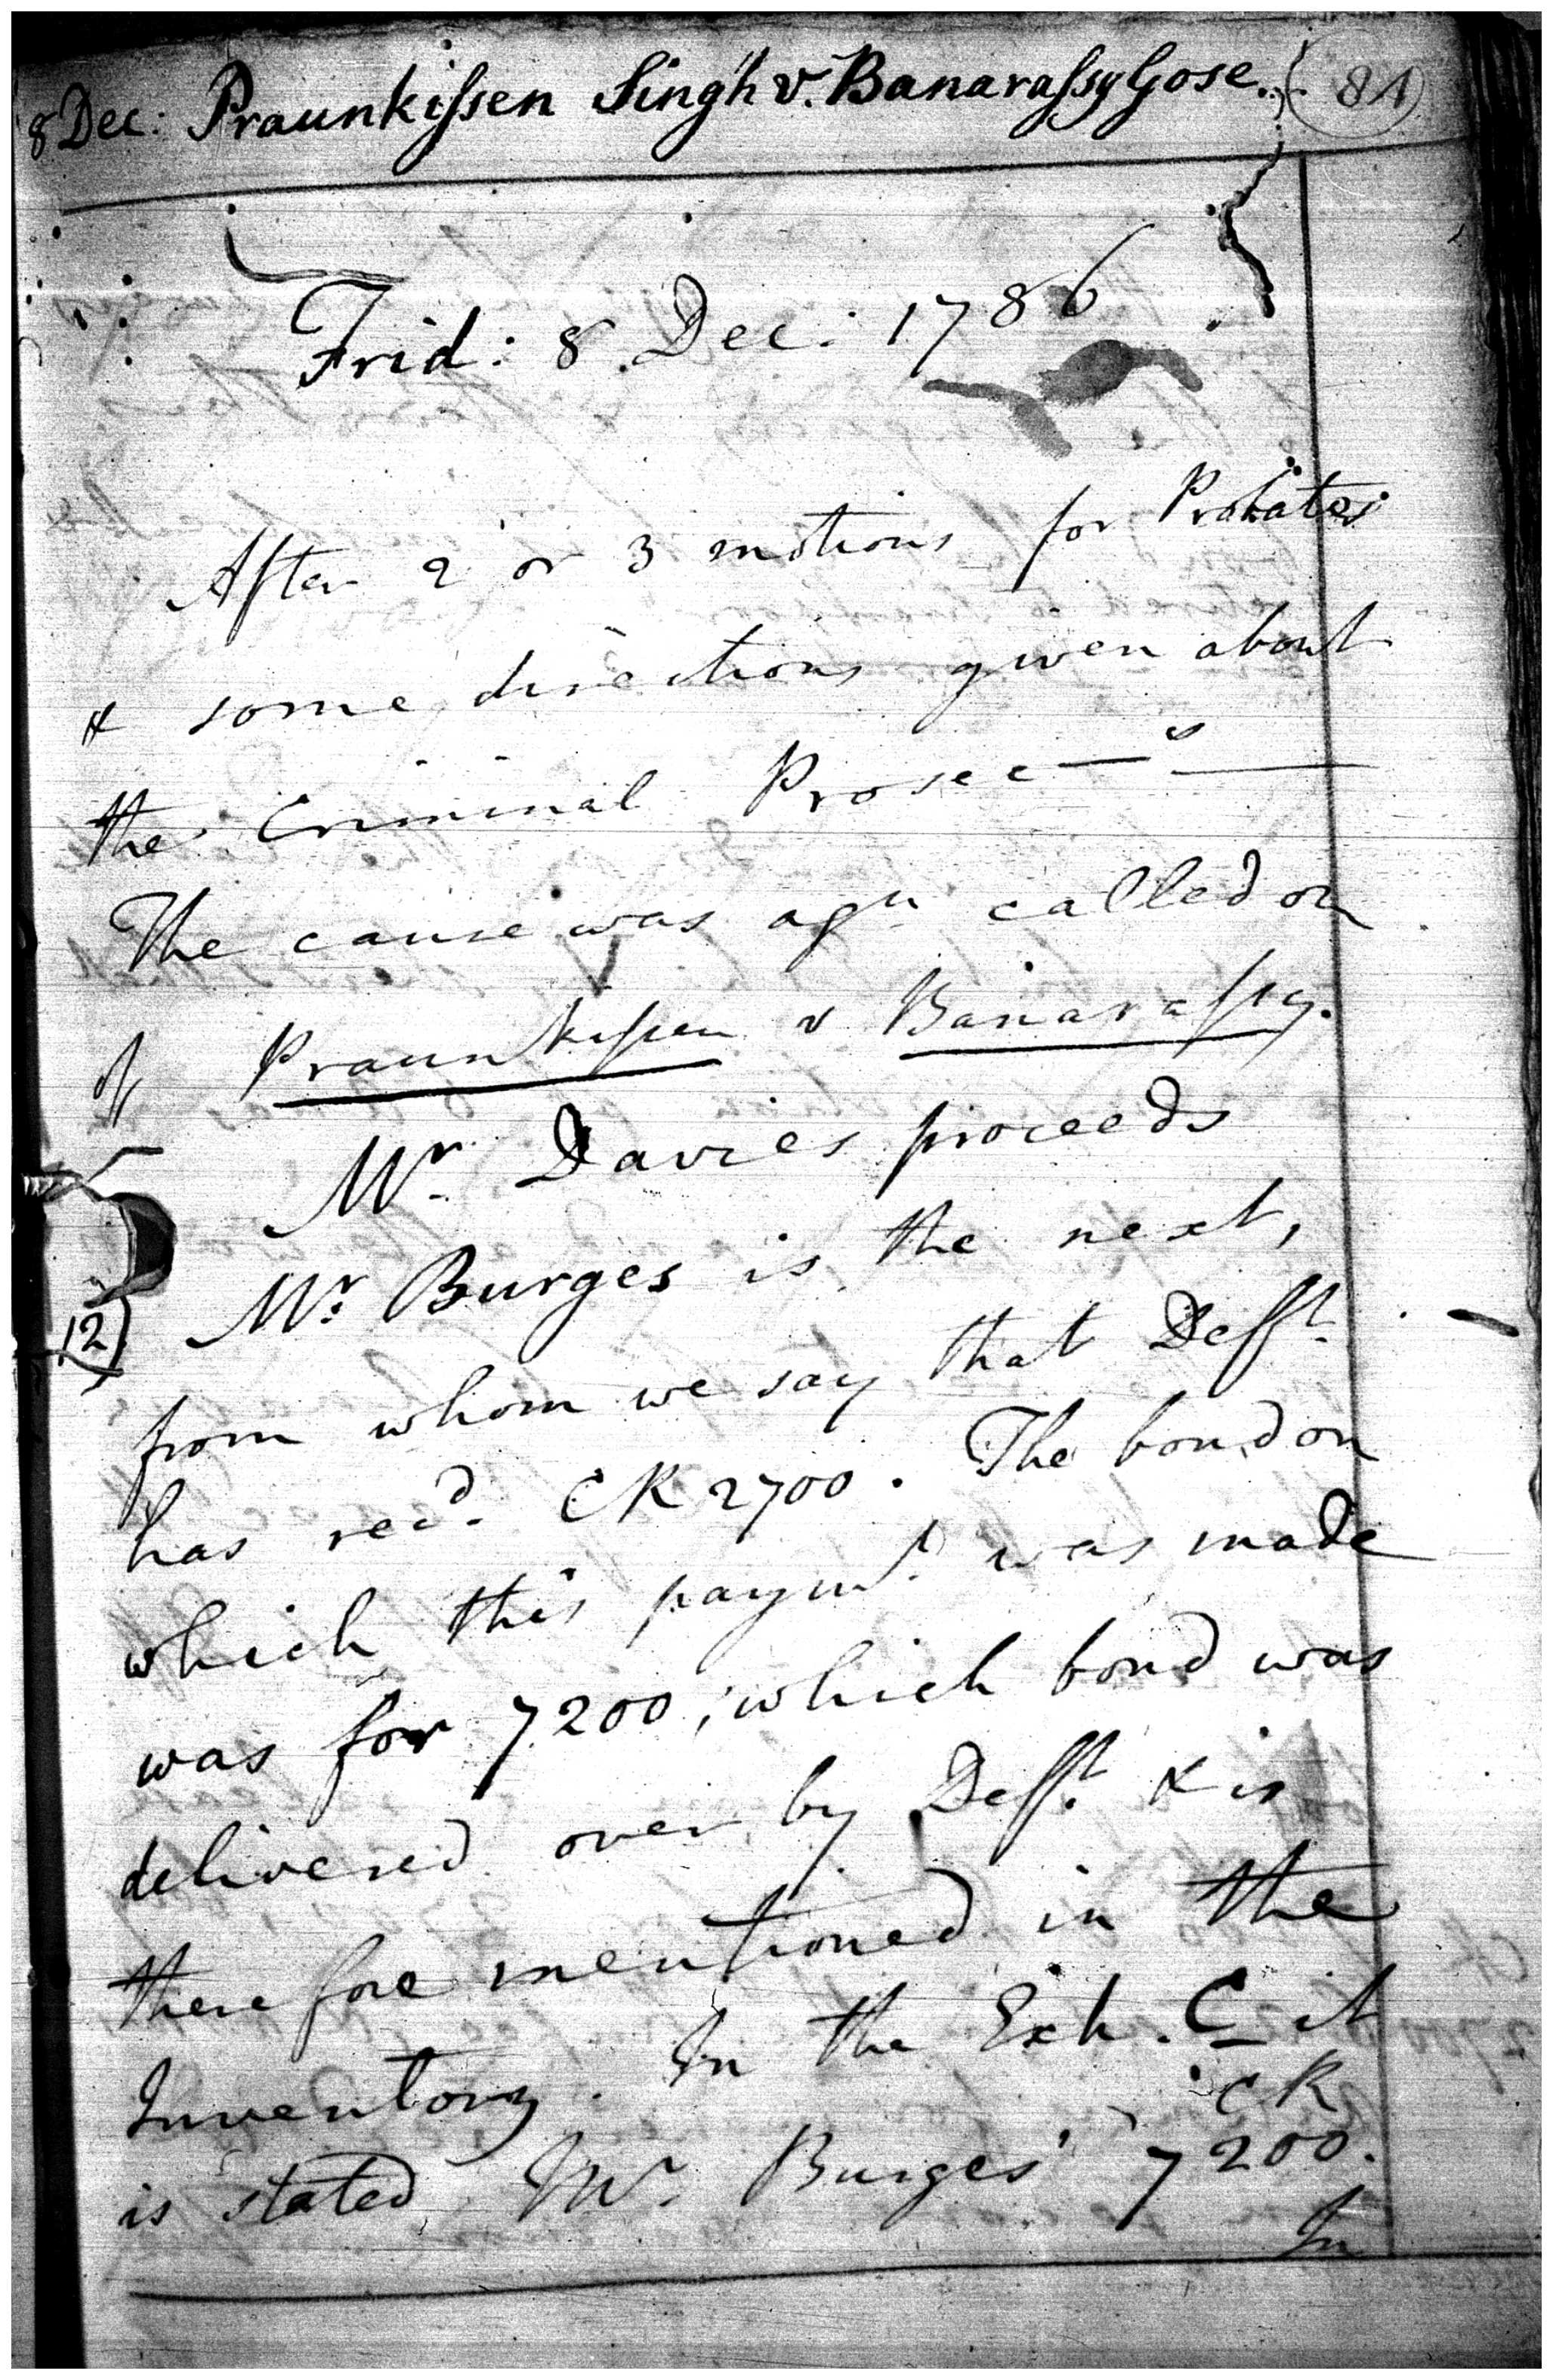 8 Dec: Praunkissen Singh v. Banarassy Gose. 81
Frid: 8 Dec: 1786
After 2 or 3 motions for Probates
& some directions given about
the Criminal Prosec—s
The cause was agn called on
of Praunkissen v Banarassy.
Mr. Davies proceeds
12) Mr. Burges is the next,
from whom we say that Defft.
has recd. CR 2700. The bond on
which this paymt. was made
was for 7200; which bond was
delivered over by Defft. & is
therefore mentioned in the
Inventory. In the Exh. C it
is stated Mr. Burges' CR 7200.
In